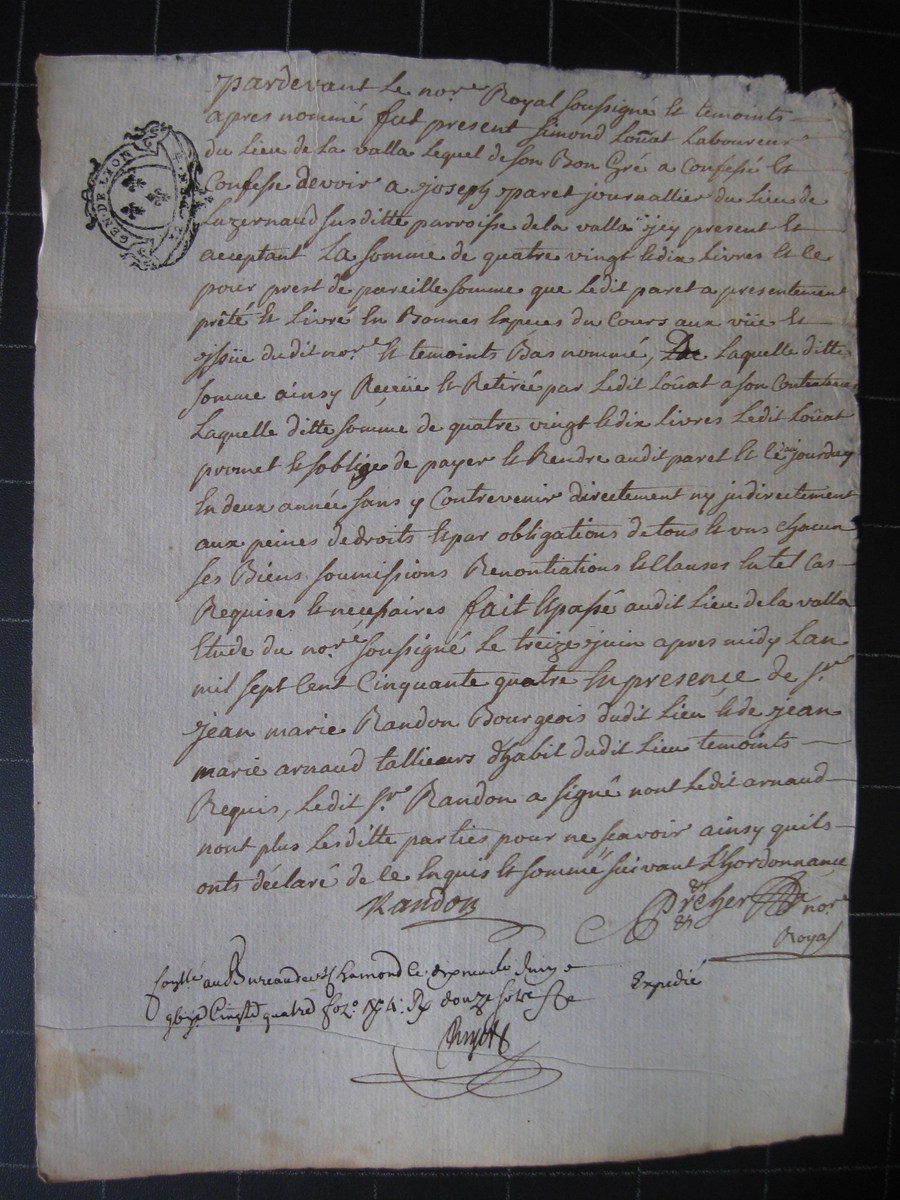 GEN. DE LYON
pardevant Le nore Royal soussigné Et temoints
apres nommé fut present Simond Loüat Laboureur
du Lieu de La valla Lequel de son Bon Gré a Confessé Et
Confesse devoir a joseph paret journallier du Lieu de
Luzernaud susditte parroisse dela valla jcy present Et
acceptant La somme de quatre vingt Et dix Livres Et Ce
pour prest de pareille somme que Ledit paret a presentement
prêté Et Livré En Bonnes Especes du Cours aux vüe Et
jssüe dudit nore Et temoints Bas nommé, Laquelle ditte
somme ainsy Reçeüe Et Retirée par Ledit Loüat a son Contentem
Laquelle ditte somme de quatre vingt Et dix Livres Ledit Loüat
promet Et soblige de payer Et Rendre audit paret Et jourduy
En deux année sans y Contrevenir directement ny jndirectement
aux peines de droits Et par obligations de tous Et uns Chacun
ses Biens soumissions Renontiations Et Clauses En tel Cas
Requises Et necessaires fait Et passé audit Lieu de la valla
Etude du nore soussigné Le treize juin apres midy Lan
mil sept Cent Cinquante quatre En presence de Sr
jean marie Randon Bourgeois dudit Lieu Et de jean
marie arnaud tallieurs dhabit dudit Lieu temoints
Requis, Ledit Sr Randon a signé nont Ledit arnaud
nont plus Lesditte parties pour ne scavoir ainsy quils
onts déclaré de Ce Enquis Et sommé suivant L'hordonnance
Randon
nore
Royal
au Bureau de St Chamond le dixneufe Juin
Cinqte quatre fo Rx douze sols
Expedié